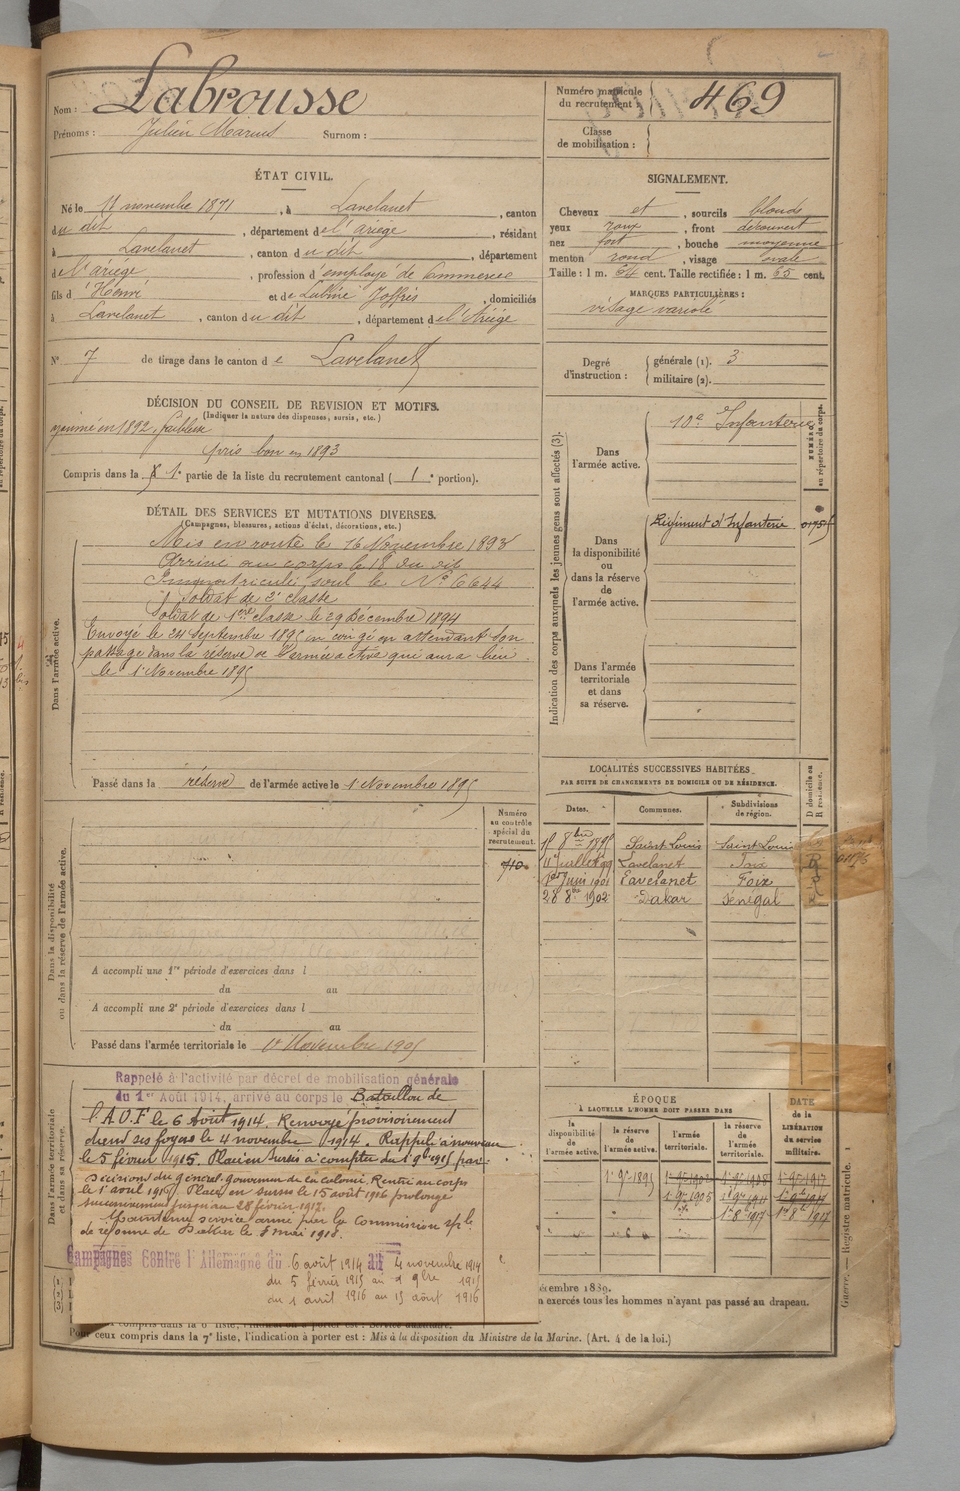 Nom : Labrousse
Prénoms : Julien Marius Surnom :
Numéro matricule du recrutement : 469
Classe de mobilisation :
ÉTAT CIVIL.
Né le 11 novembre 1871, à Lavelanet, canton
du dit, département de l'ariège, résidant
à Lavelanet, canton du dit, département
de l'ariège, profession d'employé de Commerce
fils d'Henri et de Joffrès, domiciliés
à Lavelanet, canton du dit, département de l'Ariège
N° 7 de tirage dans le canton de Lavelanet
SIGNALEMENT.
Cheveux et, sourcils blonds
yeux roux, front découvert
nez fort, bouche moyenne
menton rond, visage ovale
Taille : 1 m. 64 cent. Taille rectifiée : 1 m. 65 cent.
MARQUES PARTICULIÈRES :
visage variolé
Degré d'instruction : générale (1). 3
militaire (2).
DÉCISION DU CONSEIL DE REVISION ET MOTIFS.
(Indiquer la nature des dispenses, sursis, etc.)
ajourné en 1892, faiblesse
pris bon en 1893
Compris dans la 1e partie de la liste du recrutement cantonal (1e portion).
DÉTAIL DES SERVICES ET MUTATIONS DIVERSES.
(Campagnes, blessures, actions d'éclat, décorations, etc.)
Dans l'armée active.
Mis en route le 16 Novembre 1893
Arrivé au corps le 18 du dit
Immatriculé sous le No 6644
Soldat de 2e classe
Soldat de 1ère classe le 29 Décembre 1894
Envoyé le 24 Septembre 1895 en congé en attendant son
passage dans la réserve de l'armée active qui aura lieu
le 1 Novembre 1895
Passé dans la réserve de l'armée active le 1 Novembre 1895
Indication des corps auxquels les jeunes gens sont affectés (3).
NUMÉRO au répertoire du corps.
Dans l'armée active.
10e Infanterie
Dans la disponibilité ou dans la réserve de l'armée active.
Régiment d'Infanterie
Dans l'armée territoriale et dans sa réserve.
LOCALITÉS SUCCESSIVES HABITÉES
PAR SUITE DE CHANGEMENTS DE DOMICILE OU DE RÉSIDENCE.
D domicile ou R résidence.
Dates. Communes. Subdivisions de région.
8bre 1895 Saint Louis Saint Louis
Juillet 99 Lavelanet Foix R
1er Juin 1901 Lavelanet Foix
28 8bre 1902 Dakar Sénégal
Dans la disponibilité ou dans la réserve de l'armée active.
Numéro au contrôle spécial du recrutement.
710
A accompli une 1re période d'exercices dans l
du au
A accompli une 2e période d'exercices dans l
du au
Passé dans l'armée territoriale le 1er Novembre 1905
Dans l'armée territoriale et dans sa réserve.
Rappelé à l'activité par décret de mobilisation générale
du 1er Août 1914, arrivé au corps le Bataillon de
l'A.O.F le 6 Août 1914. Renvoyé provisoirement
dans ses foyers le 4 novembre 1914. Rappelé à nouveau
le 5 février 1915. Placé en sursis à compter du 1 9bre 1915 par
décision du général gouverneur de la colonie. Rentré au corps
le 1 avril 1916. Placé en sursis le 15 août 1916 prolongé
successivement jusqu'au 28 février 1917.
Maintenu service armé par la Commission spéle
de réforme de Dakar le 8 mai 1918.
Campagnes Contre l'Allemagne du 6 août 1914 au 4 novembre 1914
du 5 février 1915 au 9bre 1915
du 1 avril 1916 au 15 août 1916
ÉPOQUE
À LAQUELLE L'HOMME DOIT PASSER DANS
la disponibilité de l'armée active. la réserve de l'armée active. l'armée territoriale. la réserve de l'armée territoriale. DATE de la LIBÉRATION du service militaire.
1 9bre 1895 1 9bre 1917
1 9bre 1905 1 9bre 1911
1er 8bre 1917
décembre 1889.
n exercés tous les hommes n'ayant pas passé au drapeau.
Pour ceux compris dans la 7e liste, l'indication à porter est : Mis à la disposition du Ministre de la Marine. (Art. 4 de la loi.)
Guerre. — Registre matricule.